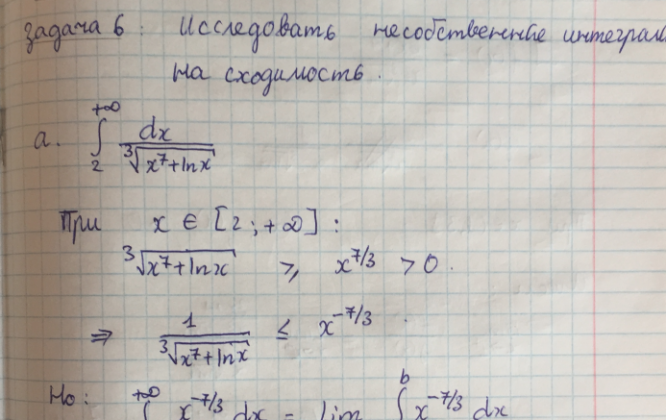 Задача 6: Исследовать несобственные интеграл
на сходимость.
а. ∫₂^{+∞} dx / ∛(x⁷+ln x)
При x ∈ [2; +∞]:
∛(x⁷+ln x) ⩾ x^{7/3} > 0.
⇒ 1 / ∛(x⁷+ln x) ≤ x^{-7/3}.
Но: ∫^{+∞} x^{-7/3} dx = lim ∫^{b} x^{-7/3} dx